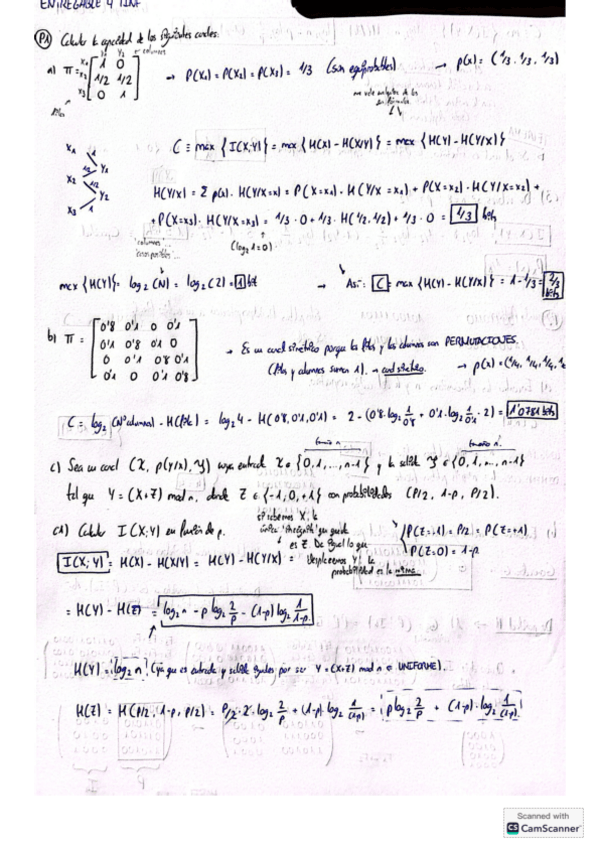 ENTREGABLE 4 TINF
P1 Calcular la capacidad de los siguientes canales:
y1 y2 columnas
a) π = x1 x2 x3 [1 0; 1/2 1/2; 0 1] → P(X1) = P(X2) = P(X3) = 1/3 (son equiprobables) → p(x) = (1/3, 1/3, 1/3)
filas
x1 1
1/2 y1
x2
1/2 y2
x3 1
C ≡ max { I(X;Y) } = max { H(X) - H(X/Y) } = max { H(Y) - H(Y/X) }
H(Y/X) = Σ p(x) · H(Y/X=x) = P(X=x1) · H(Y/X=x1) + P(X=x2) · H(Y/X=x2) +
+ P(X=x3) · H(Y/X=x3) = 1/3 · 0 + 1/3 · H(1/2, 1/2) + 1/3 · 0 = 1/3 bits
(log2 1 = 0)
"columnas"
max {H(Y)} = log2 (N) = log2 (2) = 1 bit → Así: C = max {H(Y) - H(Y/X)} = 1 - 1/3 = 2/3 bits
b) π = [0'8 0'1 0 0'1; 0'1 0'8 0'1 0; 0 0'1 0'8 0'1; 0'1 0 0'1 0'8]
→ Es un canal simétrico porque las filas y las columnas son PERMUTACIONES.
(filas y columnas suman 1). → canal simétrico. → p(x) = (1/4, 1/4, 1/4, 1/4
C = log2 (Nº columnas) - H(fila) = log2 4 - H(0'8, 0'1, 0'1) = 2 - (0'8 · log2 1/0'8 + 0'1 · log2 1/0'1 · 2) = 1'0781 bits
tamaño n. tamaño n.
c) Sea un canal (X, p(y/x), Y) cuya entrada X ∈ {0, 1, ..., n-1} y la salida Y ∈ {0, 1, ..., n-1}
tal que Y = (X+Z) mod n, donde Z ∈ {-1, 0, +1} con probabilidades (P/2, 1-p, P/2).
c1) Calcular I(X;Y) en función de p.
si sabemos X, la
única "incógnita" que queda
es Z. Da igual lo que
desplacemos Y, la
probabilidad es la misma.
{ P(Z=-1) = P/2 = P(Z=+1)
P(Z=0) = 1-p.
I(X;Y) = H(X) - H(X/Y) = H(Y) - H(Y/X) =
= H(Y) - H(Z) = log2 n - p log2 2/p - (1-p) log2 1/1-p
H(Y) = log2 n (ya que es entrada y salida iguales por ser Y = (X+Z) mod n o UNIFORME).
H(Z) = H(P/2, 1-p, P/2) = P/2 · 2 · log2 2/p + (1-p) log2 1/(1-p) = p log2 2/p + (1-p) · log2 1/(1-p)
Scanned with
CS CamScanner